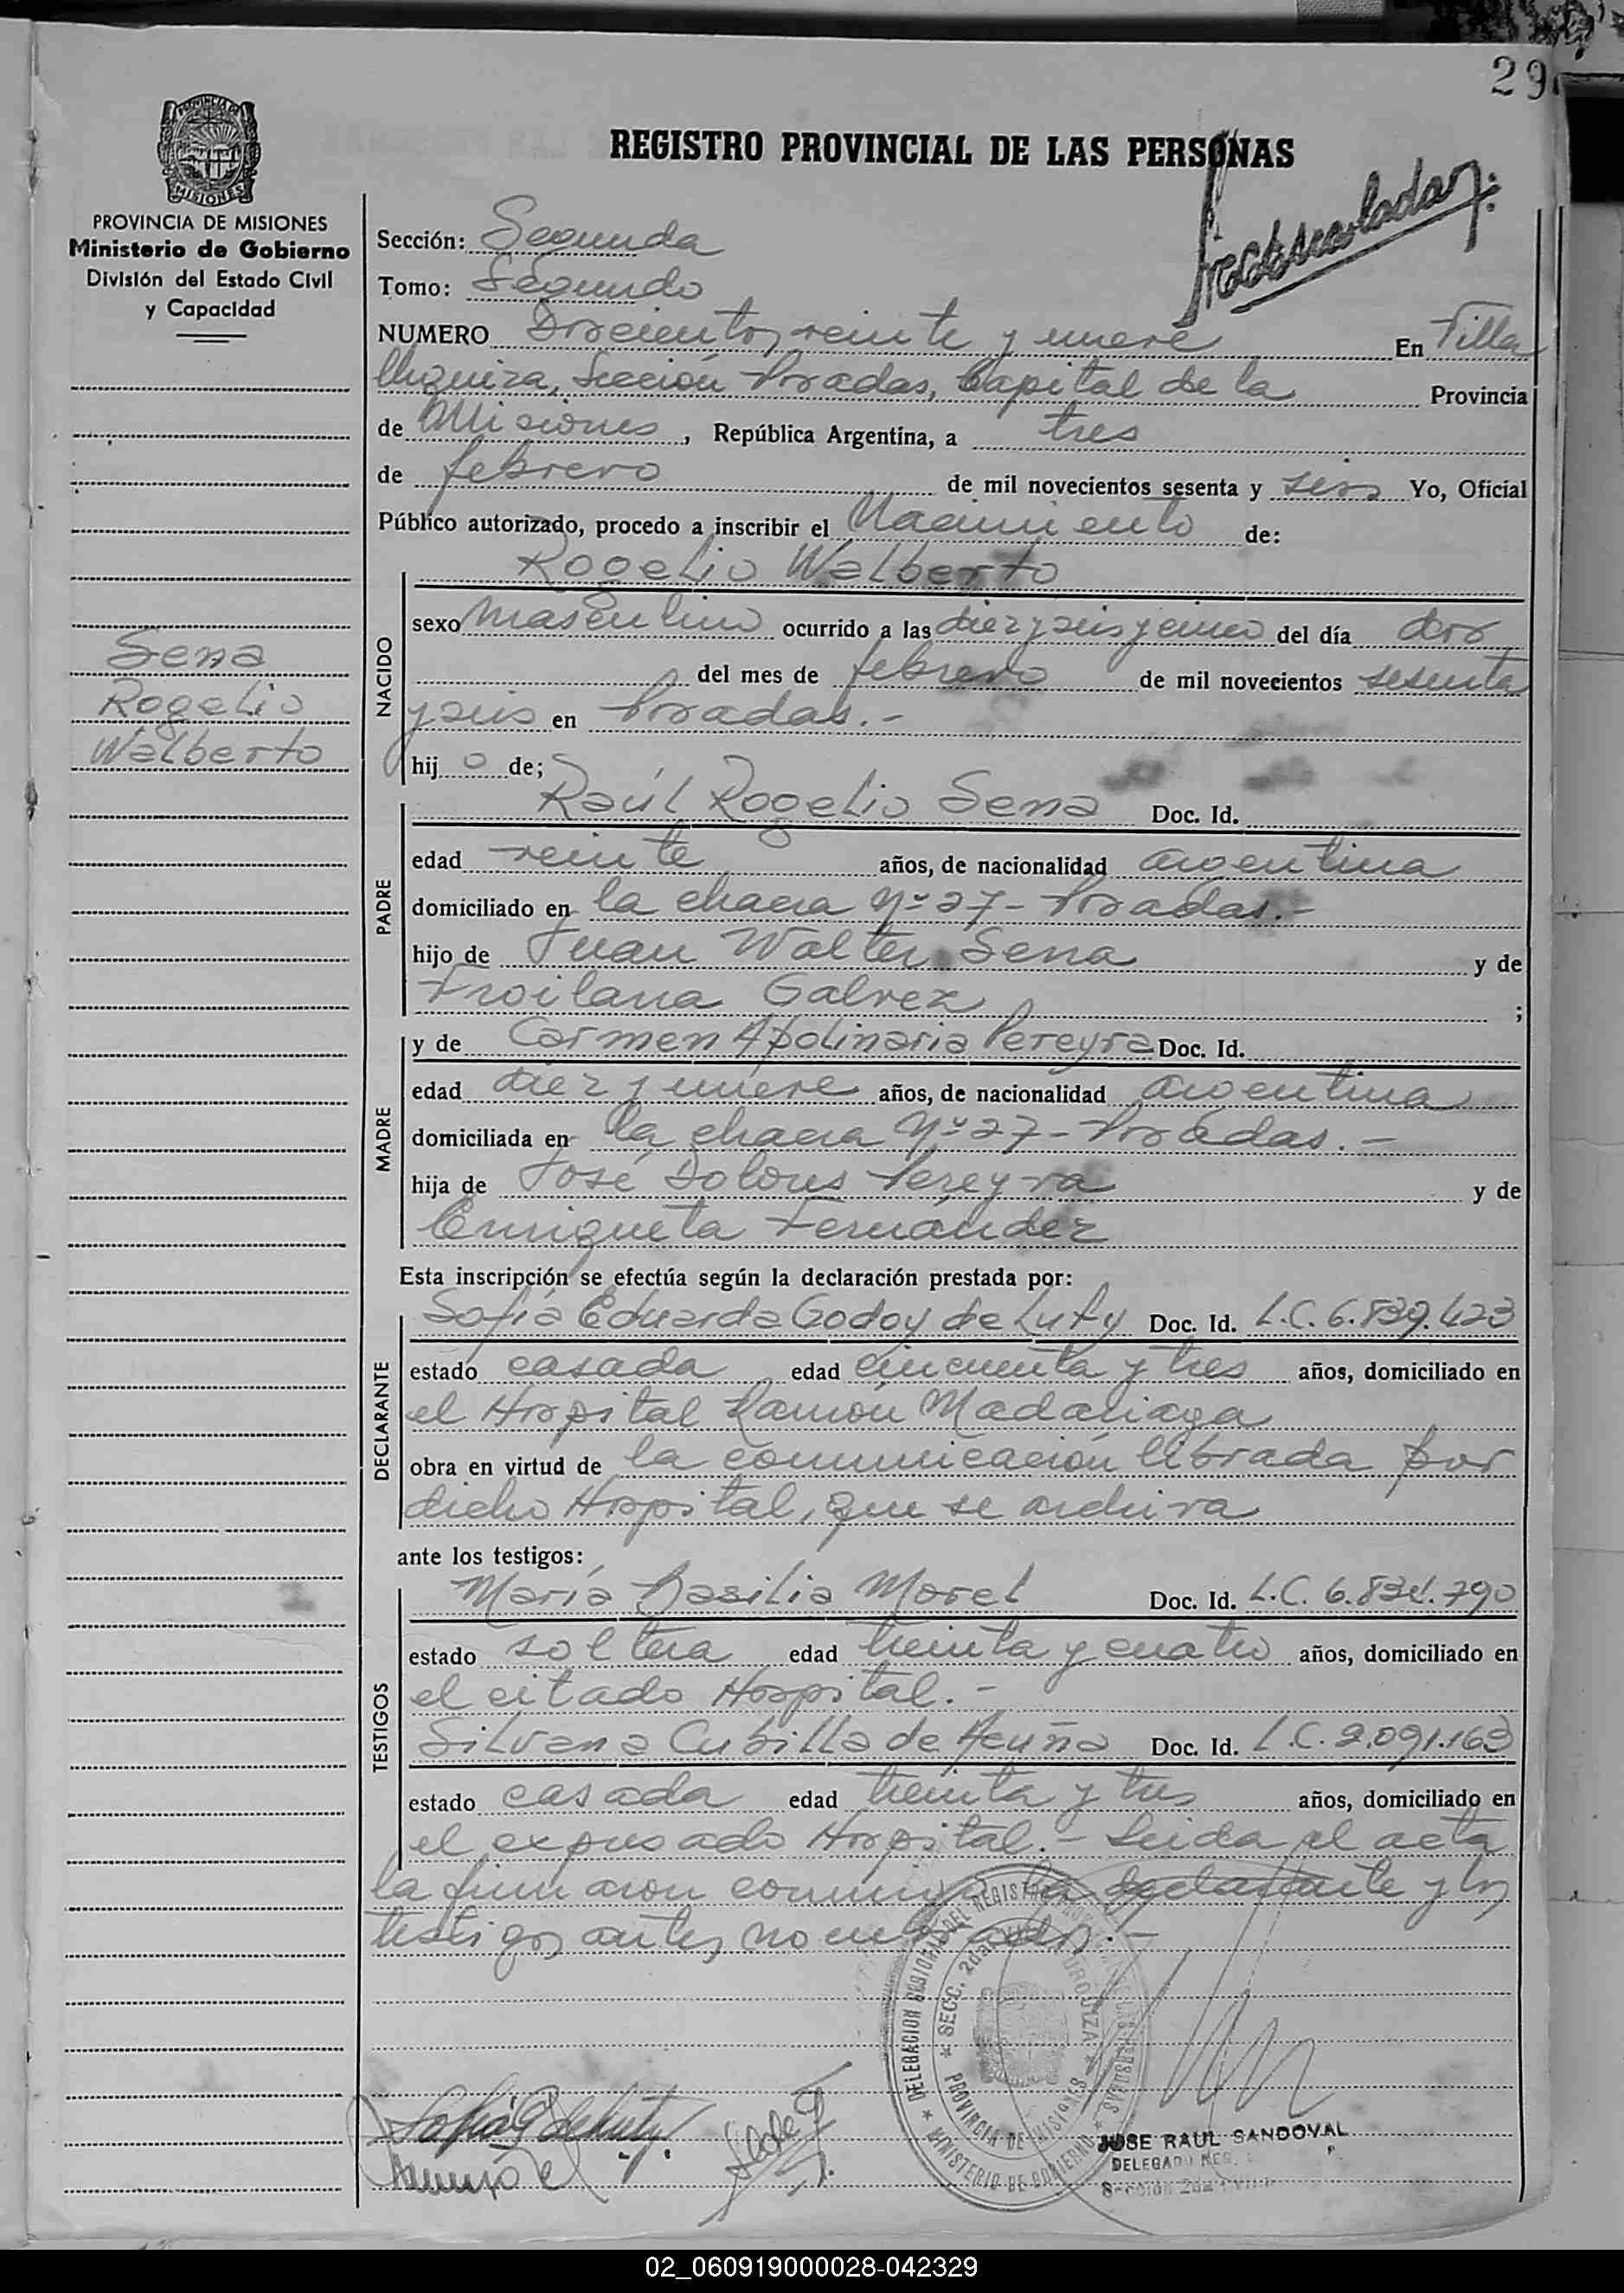 29
REGISTRO PROVINCIAL DE LAS PERSONAS
PROVINCIA DE MISIONES
Ministerio de Gobierno
División del Estado Civil
y Capacidad
Sena
Rogelio
Walberto
Sección: Segunda
Tomo: Segundo
NUMERO Doscientos veinte y nueve En Villa
Urquiza, Sección Posadas, Capital de la Provincia
de Misiones, República Argentina, a tres
de febrero de mil novecientos sesenta y seis Yo, Oficial
Público autorizado, procedo a inscribir el Nacimiento de:
Rogelio Walberto
NACIDO
sexo masculino ocurrido a las diez y seis y cinco del día dos
del mes de febrero de mil novecientos sesenta
y seis en Posadas.-
hijo de;
Raúl Rogelio Sena Doc. Id.
PADRE
edad veinte años, de nacionalidad argentina
domiciliado en la chacra Nº 27- Posadas.-
hijo de Juan Walter Sena y de
Froilana Galvez ;
y de Carmen Apolinaria Pereyra Doc. Id.
MADRE
edad diez y nueve años, de nacionalidad argentina
domiciliada en la chacra Nº 27- Posadas.-
hija de José Dolores Pereyra y de
Enriqueta Fernández
Esta inscripción se efectúa según la declaración prestada por:
Sofía Eduarda Godoy de Luty Doc. Id. L.C. 6.839.423
DECLARANTE
estado casada edad cincuenta y tres años, domiciliado en
el Hospital Ramón Madariaga
obra en virtud de la comunicación librada por
dicho Hospital, que se archiva
ante los testigos:
María Basilia Morel Doc. Id. L.C. 6.834.790
TESTIGOS
estado soltera edad treinta y cuatro años, domiciliado en
el citado Hospital.-
Silvana Cubilla de Acuña Doc. Id. L.C. 2.091.163
estado casada edad treinta y tres años, domiciliado en
el expresado Hospital.- Leida el acta
la firmaron conmigo la declarante y los
testigos antes nombrados.-
DELEGACION REGIONAL DEL REGISTRO PROVINCIAL DE LAS PERSONAS
MINISTERIO DE GOBIERNO
SECC. 2da. URQUIZA
PROVINCIA DE MISIONES
JOSE RAUL SANDOVAL
DELEGADO REG.
Sección 2da.
02_060919000028-042329